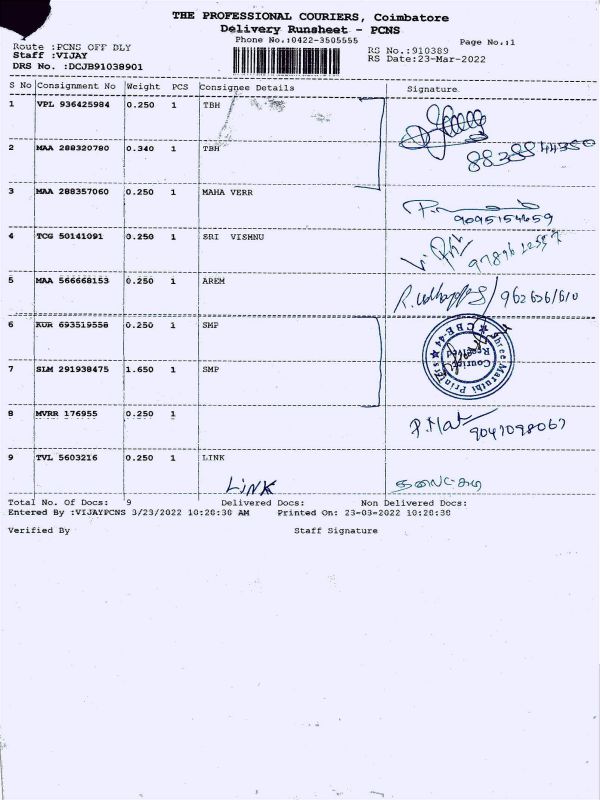 THE PROFESSIONAL COURIERS, Coimbatore
Delivery Runsheet - PCNS
Phone No.:0422-3505555
Page No.:1
Route :PCNS OFF DLY
RS No.:910389
Staff :VIJAY
RS Date:23-Mar-2022
DRS No. :DCJB91038901
S No Consignment No Weight PCS Consignee Details Signature
1 VPL 936425984 0.250 1 TBH
2 MAA 288320780 0.340 1 TBH
3 MAA 288357060 0.250 1 MAHA VERR
9095154659
4 TCG 50141091 0.250 1 SRI VISHNU
5 MAA 566668153 0.250 1 AREM
6 KUR 693519558 0.250 1 SMP
CBE-44
Courier
Received
7 SLM 291938475 1.650 1 SMP
8 MVRR 176955 0.250 1
9047098067
9 TVL 5603216 0.250 1 LINK
LINK
Total No. Of Docs: 9 Delivered Docs: Non Delivered Docs:
Entered By :VIJAYPCNS 3/23/2022 10:28:30 AM Printed On: 23-03-2022 10:28:30
Verified By Staff Signature